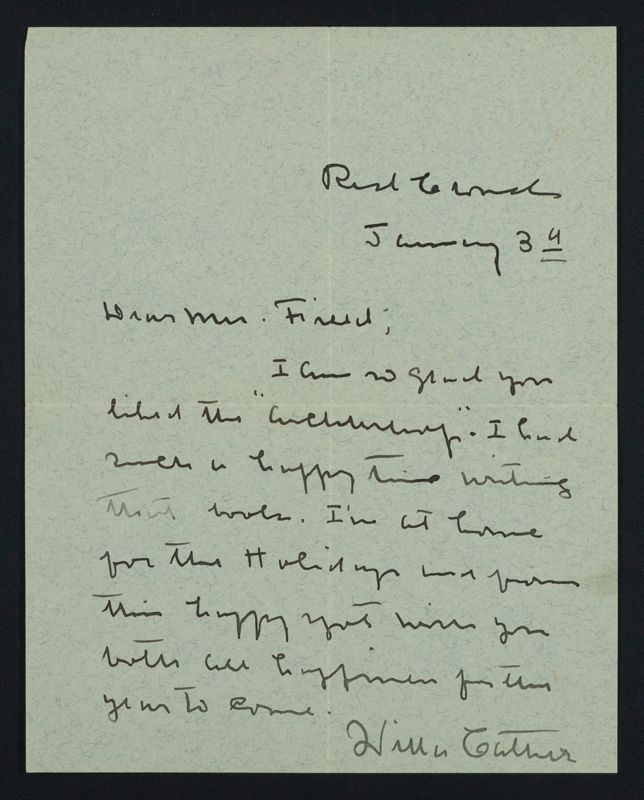 Red Cloud
January 3
Dear Mrs. Field;
I am so glad you
liked the "Archbishop". I had
such a happy time writing
that book. I'm at home
for the Holidays and from
this happy spot wish you
both all happiness for the
year to come.
Willa Cather